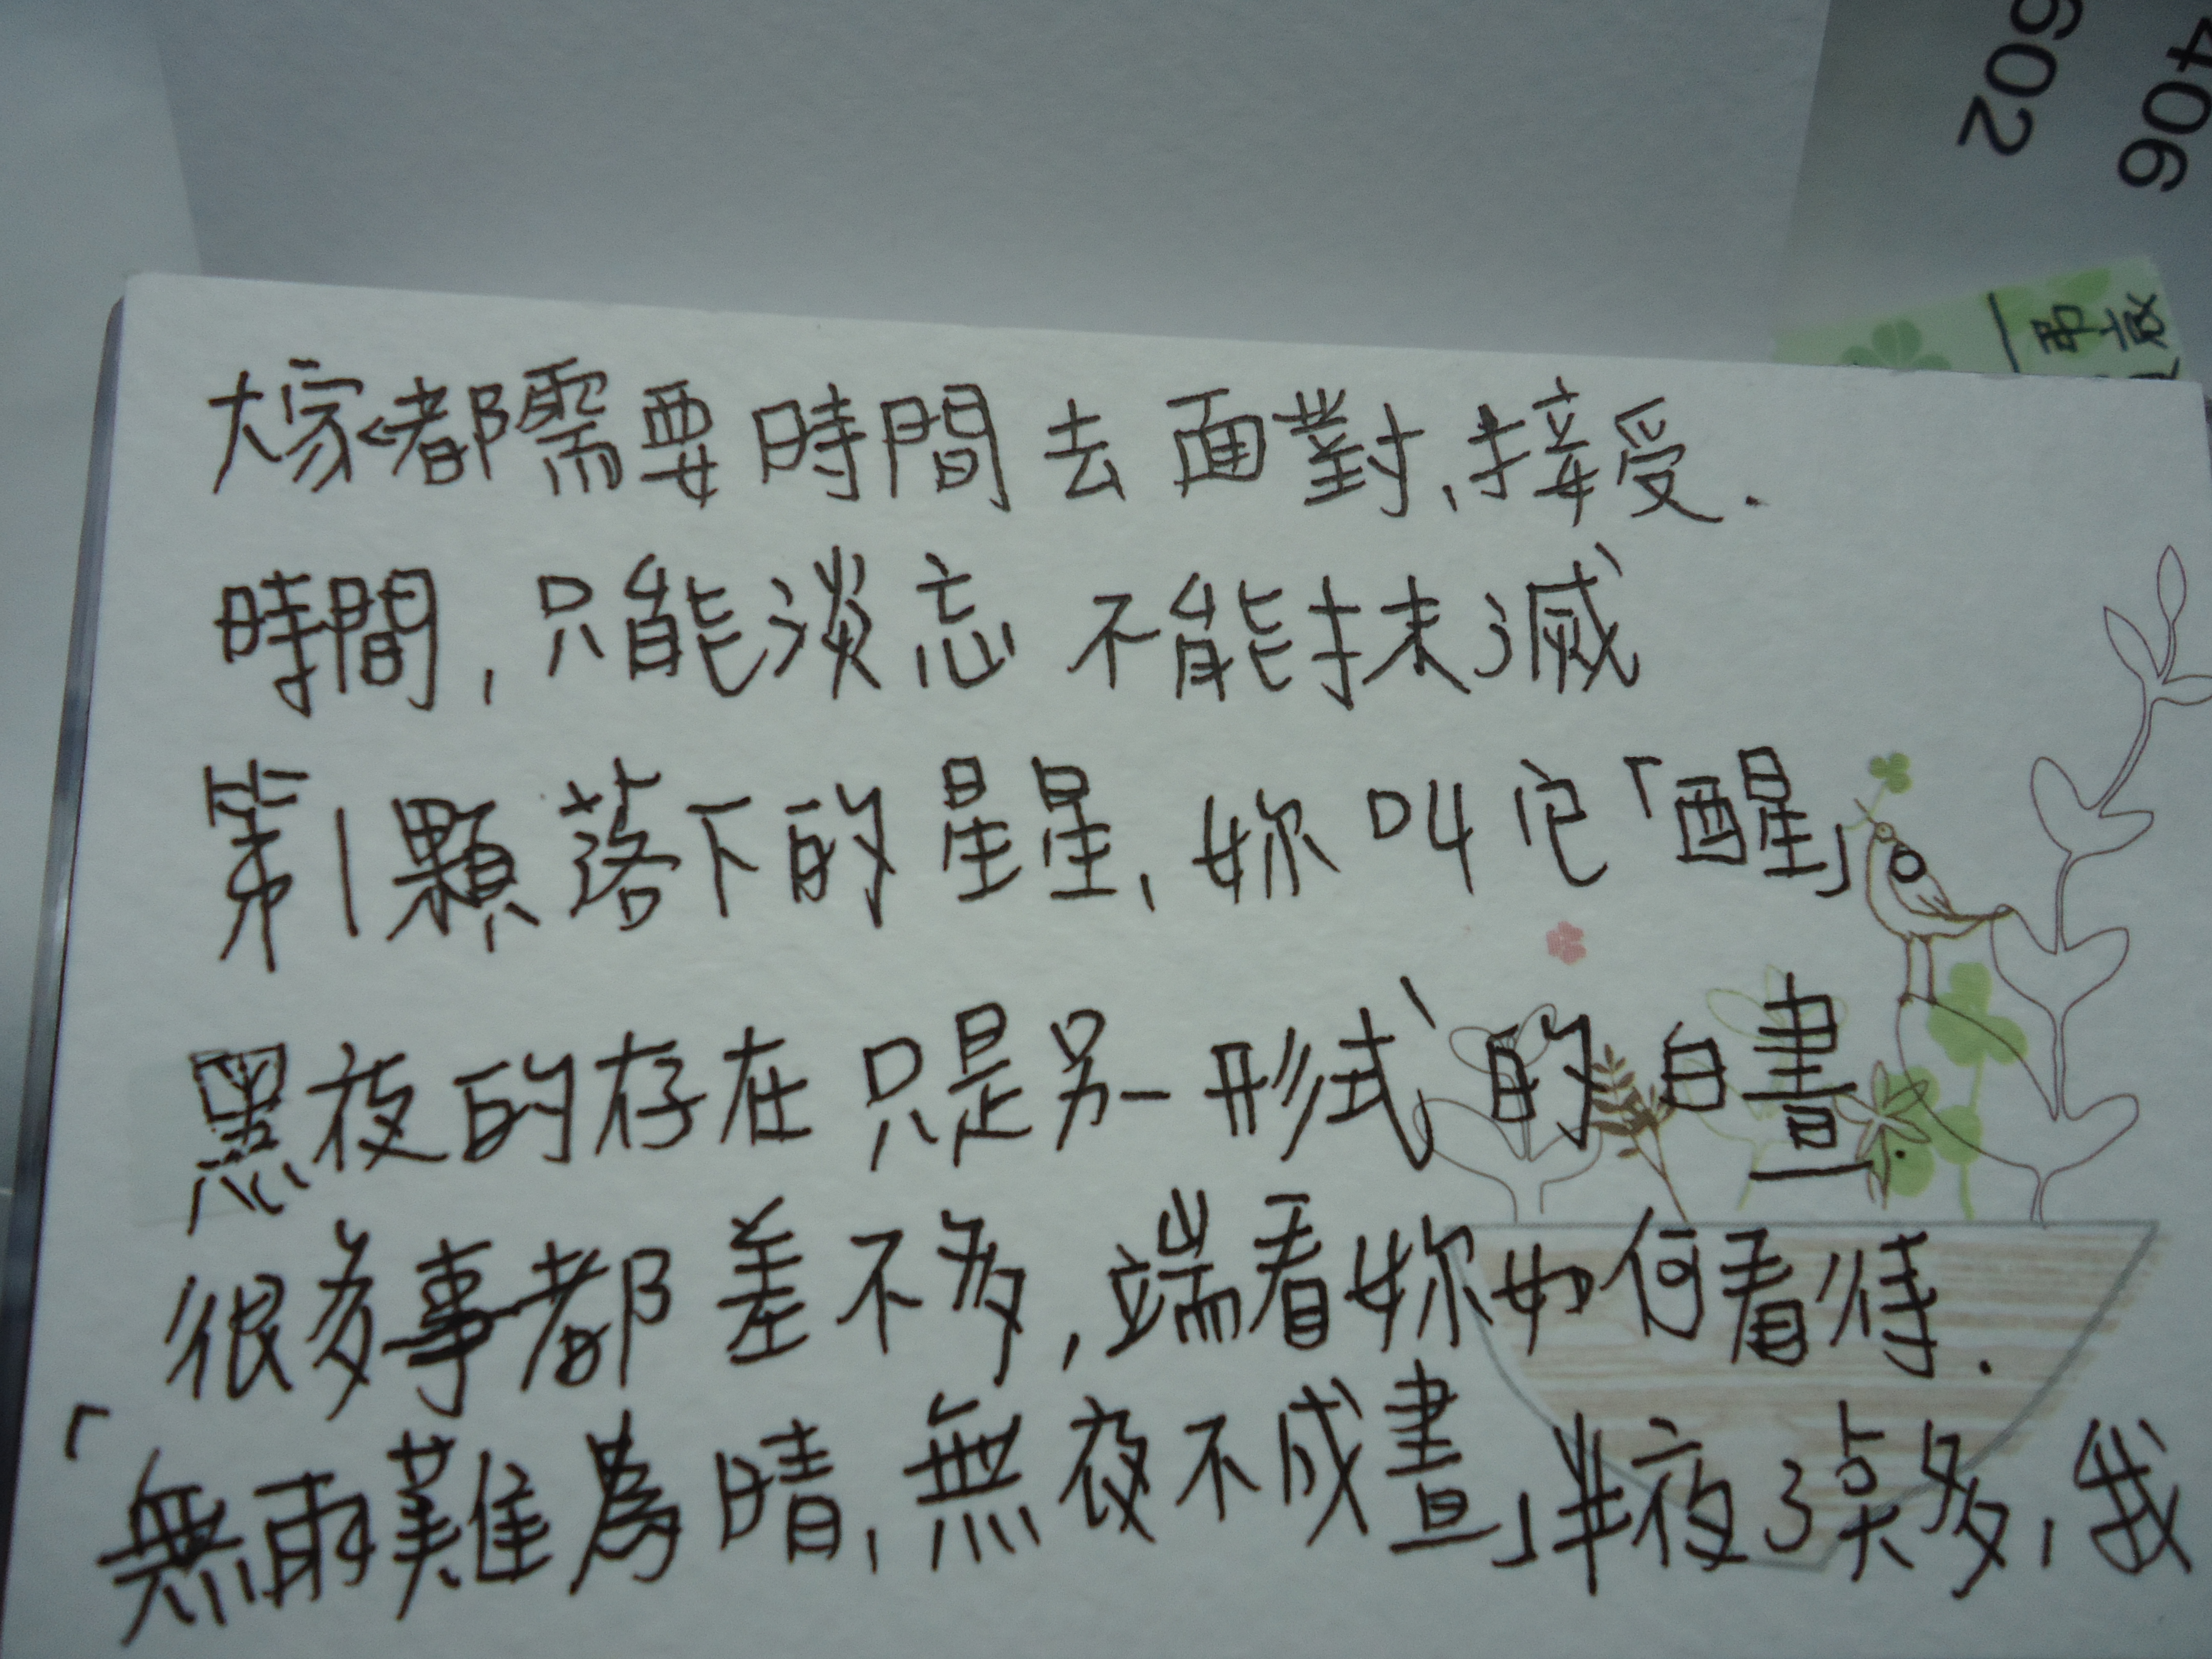 602
406
大家都需要時間去面對、接受.
時間，只能淡忘 不能抹滅
第1顆落下的星星，妳叫它「醒」
黑夜的存在只是另一形式的白晝.
很多事都差不多，端看妳如何看待.
「無雨難為晴，無夜不成晝」半夜3点多，我